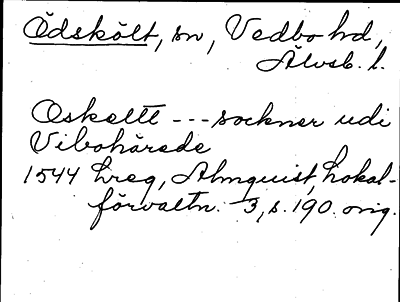 Ödskölt, sn, Vedbo hd,
Älvsb. l.
Oskeltt --- sockner udi
Vibohärede
1544 Lreg, Almquist, Lokal-
förvaltn. 3, s. 190. orig.